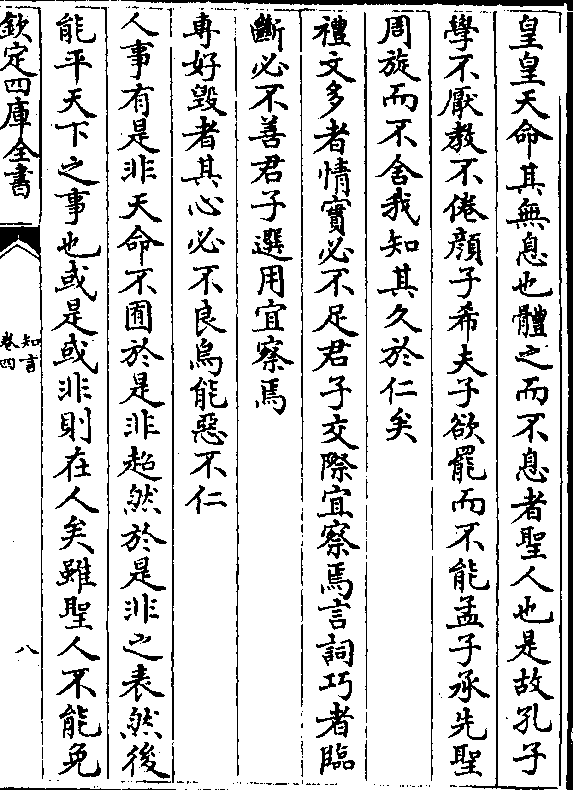 皇皇天命其無息也體之而不息者聖人也是故孔子
學不厭教不倦顔子希夫子欲罷而不能孟子承先聖
周旋而不舍我知其久於仁矣
禮文多者情實必不足君子交際宜察焉言詞巧者臨
斷必不善君子選用宜察焉
專好毀者其心必不良烏能惡不仁
人事有是非天命不囿於是非超然於是非之表然後
能平天下之事也或是或非則在人矣雖聖人不能免
欽定四庫全書
知言
卷四
八